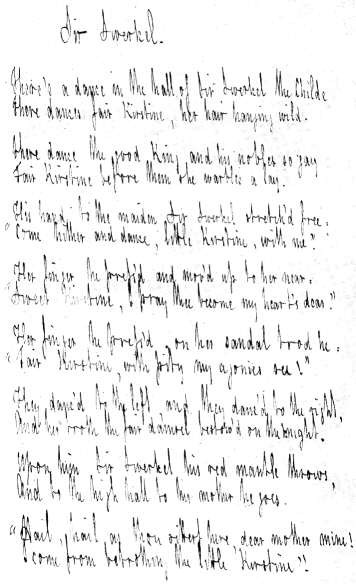 Sir Swerkel.
There's a dance in the hall of Sir Swerkel the Childe
There dances fair Kirstine, her hair hanging wild.
There dance the good King and his nobles so gay
Fair Kirstine before them she warbles a lay.
His hand to the maiden Sir Swerkel stretch'd free:
"Come hither and dance, little Kirstine, with me!"
Her finger he press'd and mov'd up to her near:
"Sweet Kirstine, I pray thee become my heart's dear."
Her finger he press'd, on her sandal trod he:
"Fair Kirstine, with pity my agonies see!"
They danc'd to the left and they danc'd to the right,
And her troth the fair damsel bestow'd on the knight.
Upon high Sir Swerkel his red mantle throws,
And to the high hall to his mother he goes.
"Hail, hail, as thou sittest here, dear mother mine!
I come from betrothing the little Kirstine"!